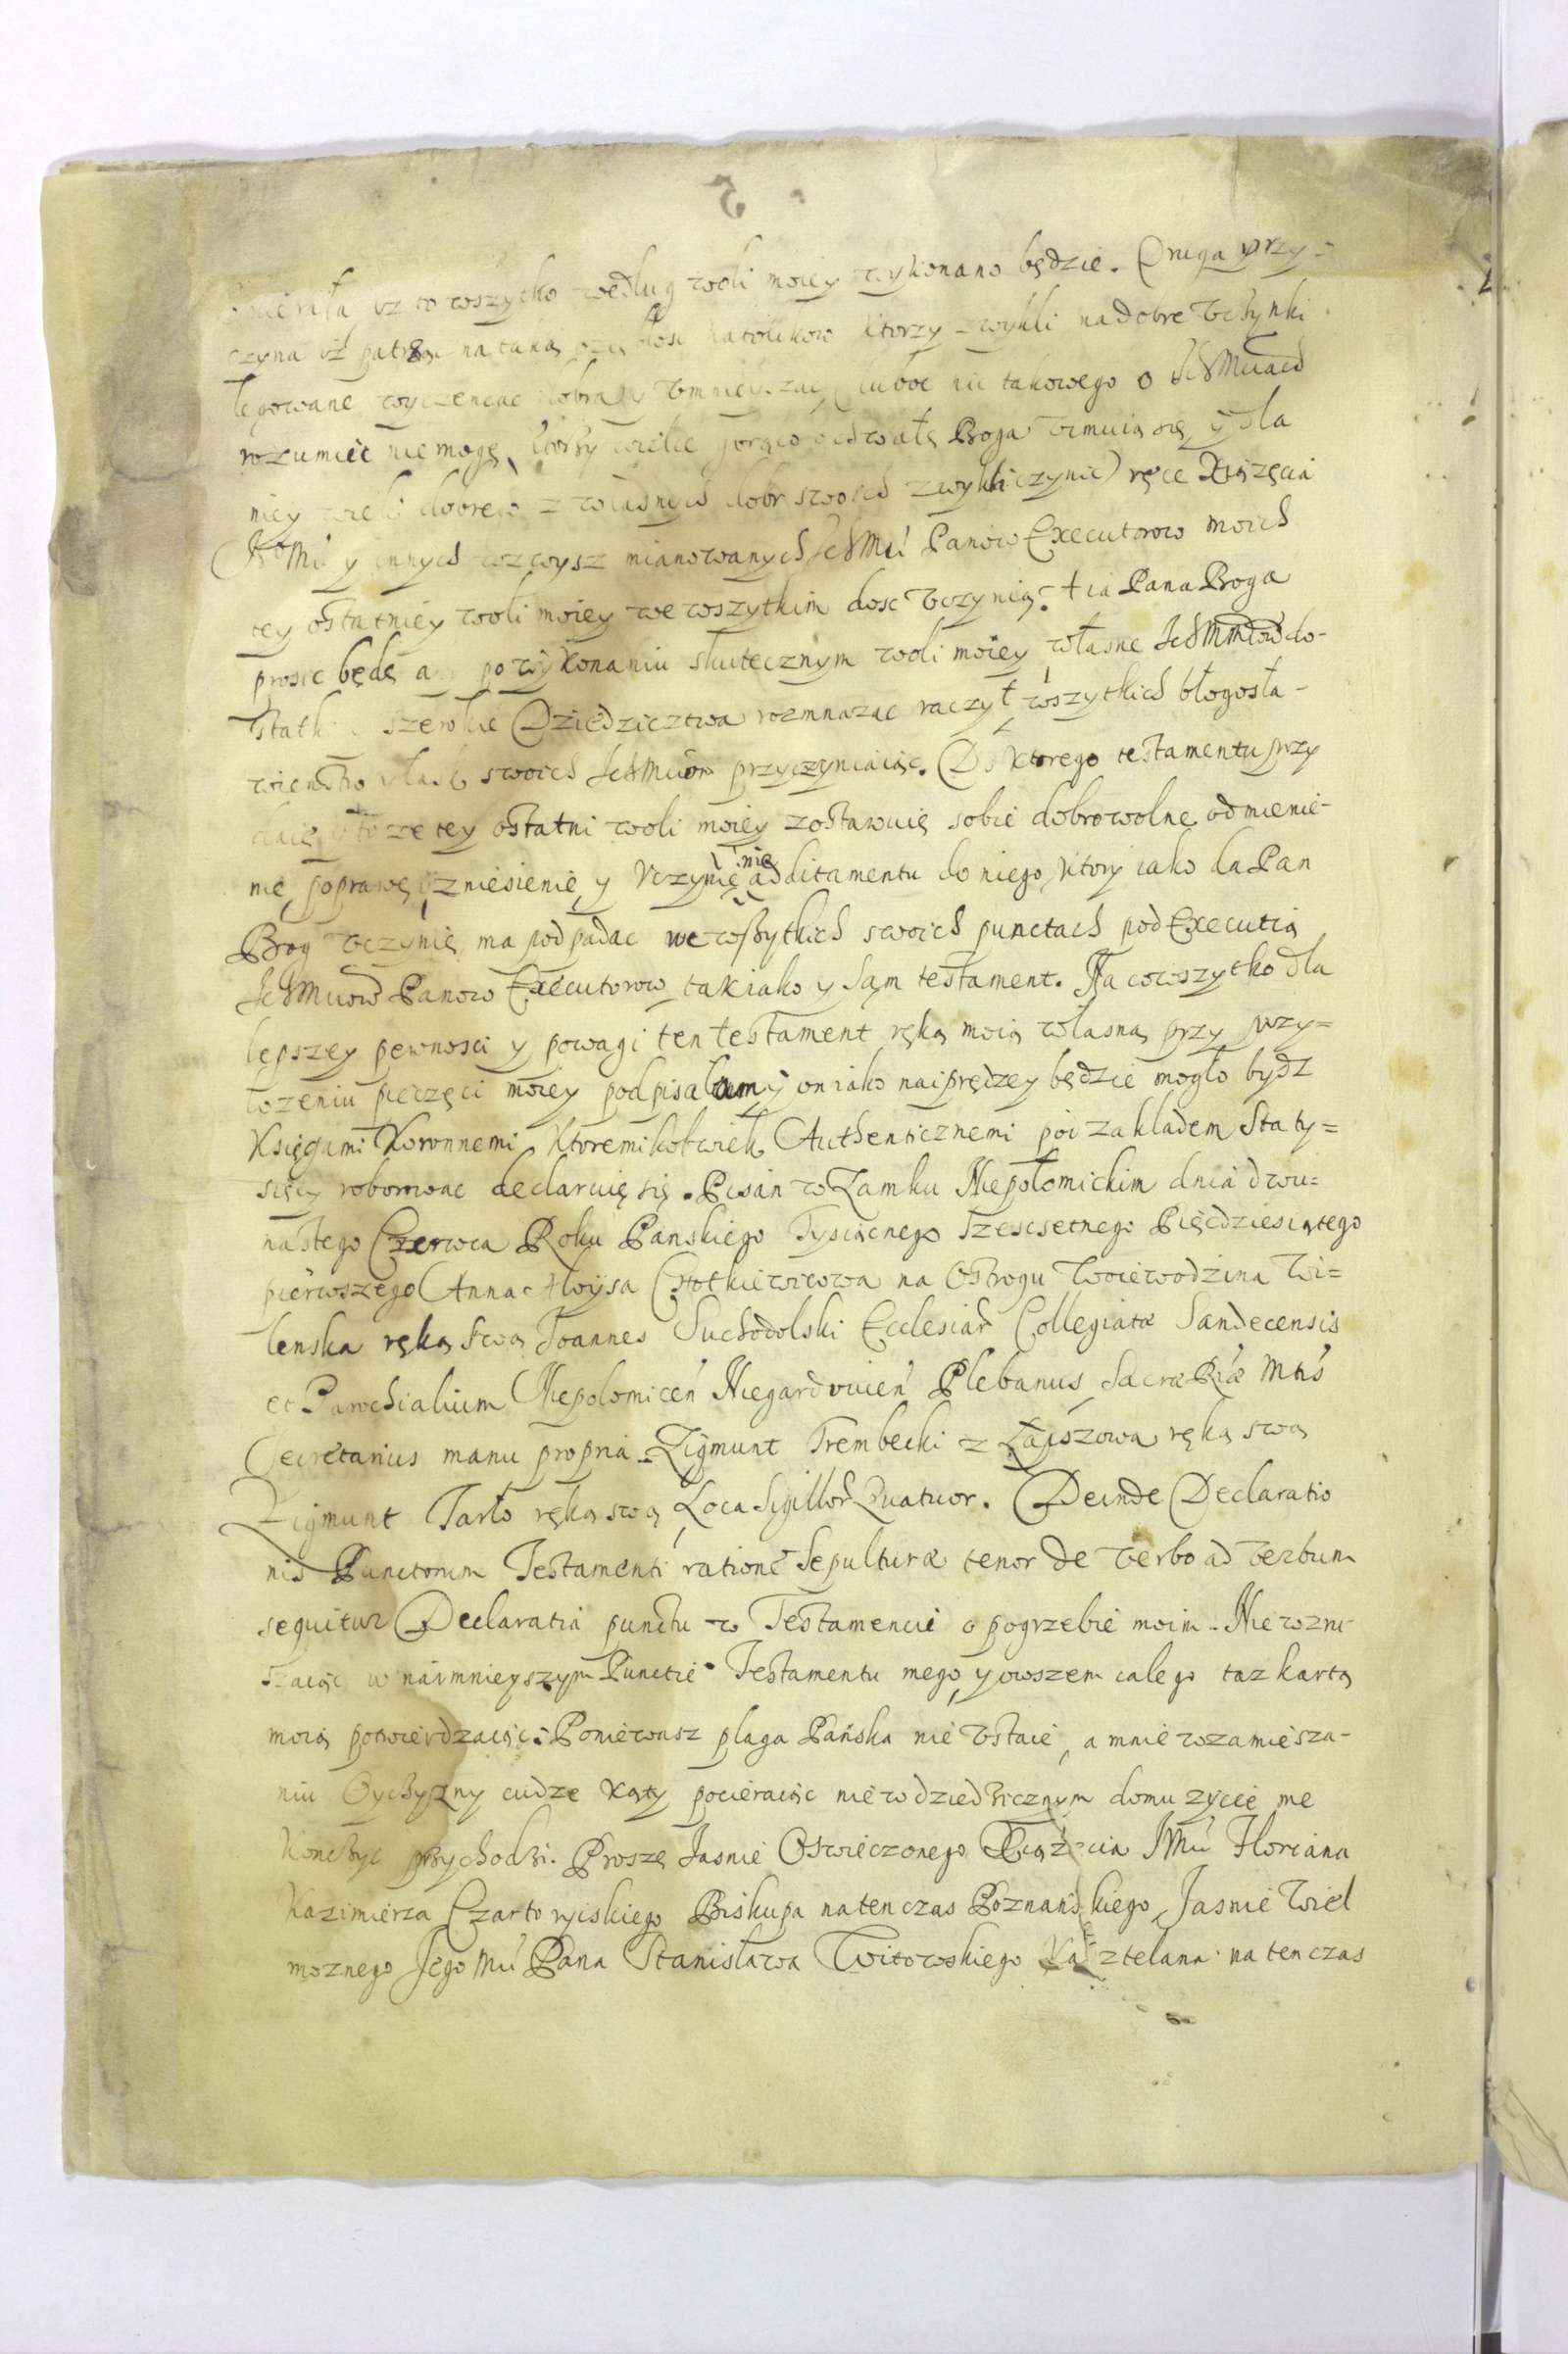 uz to wszytko według woli moiey wykonano będzie. Druga przy=
czyna iż patrząc na taką Katolikow ktorzy zwykli na dobre uczynki
legowane wyczencac dobra y umnieyszac, (luboc nic takowego o IchMciach
rozumiec nie mogę, ktorzy wielce gorąco o chwałę Boga uimuią się y dla
niey wiele dobrego z własnych dobr swoich zwykli czynic) ręce Xiązęcia
JoMci y innych wzwysz mianowanych IchMci Panow Executorow moich
tey ostatniey woli moiey we wszytkim dosc uczynią: + ia Pana Boga
prosic będę a po wykonaniu skutecznym woli moiey własne IchMmciow do-
statki szerokie Dziedzictwa rozmnazac raczył, wszytkich błogosła-
wienstwo łask swoich IchMciow przyczyniaiąc. Do ktorego testamentu przy
daię, iż w tey ostatni woli moiey zostawuię sobie dobrowolne odmienie-
nie, poprawę, zniesienie, y Uczynienie additamentu do niego, ktory iako da Pan
Bog uczynię, ma podpadac we wszytkich swoich punctach pod Executią
IchMciow Panow Executorow, tak iako y sam testament. Na co wszytko dla
lepszey pewnosci y powagi ten testament ręką moią własną przy przy=
łozeniu pieczęci moiey podpisałam y on iako naiprędzey będzie mogło bydz
Xsięgami Koronnemi, ktoremikolwiek Authenticznemi pod zakładem sta ty=
sięcy roborowac declaruię się. Pisan w Zamku Niepołomickim dnia dwu=
nastego Czerwca Roku Panskiego Tysiącnego szescsetnego Pięcdziesiątego
pierwszego Anna Aloysa Chotkiewicowa na Ostrogu Woiewodzina Wi=
lenska ręką swą Joannes Suchodolski Ecclesiar Collegiatæ Sandecensis
et Parochialium Niepolomicen Niegardovicien Plebanus Sacræ Ræ Mtis
Secretarius manu propria. Zigmunt Trembecki z Łapszowa ręką swą
Zigmunt Tarło ręką swą, Loca Sigillor Quatuor. Deinde Declaratio
nis Punctorum Testamenti ratione Sepulturæ tenor de verbo ad verbum
sequitur Declaratia punctu w Testamencie o pogrzebie moim. Nie wzru
szaiąc w naimnieyszym Punctie Testamentu mego, y owszem calego taz kartą
moią potwierdzaiąc: Poniewasz plaga Pańska nie ustaie, a mnie w zamiesza-
niu Oyczyzny cudze Kąty pocieraiąc nie w dziedzicznym domu zycie me
Konczyc przychodzi. Proszę Jasnie Oswieczonego Xiązęcia JMci Floriana
Kazimierza Czartoryiskiego Biskupa na ten czas Poznańskiego, Jasnie Wiel
moznego Jego Mci Pana Stanisława Witowskiego Kasztelana na ten czas